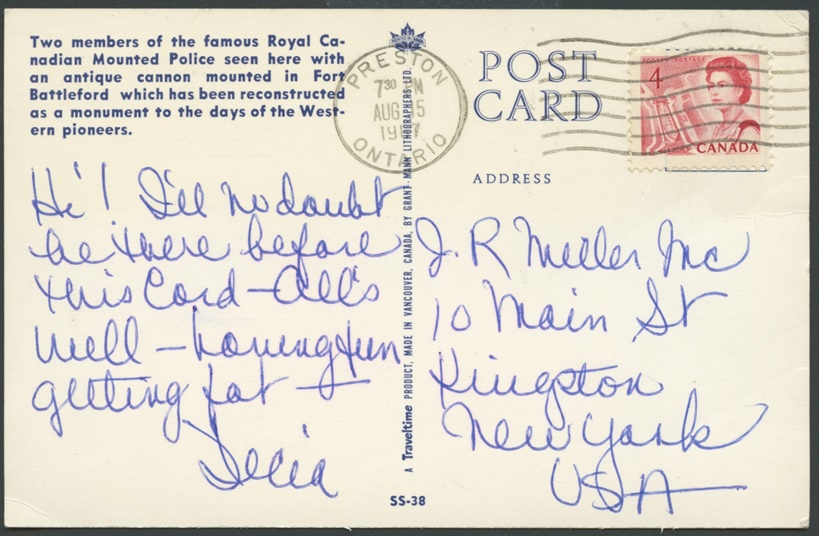 Two members of the famous Royal Ca-
nadian Mounted Police seen here with
an antique cannon mounted in Fort
Battleford which has been reconstructed
as a monument to the days of the West-
ern pioneers.
PRESTON
7 30
AUG 5
19 7
ONTARIO
POST
CARD
4
POSTES POSTAGE
CANADA
ADDRESS
Hi! I'll no doubt
be there before
this Card - All's
well - having fun
getting fat -
J. R Miller Inc
10 Main St
Kingston
New York
USA
A Traveltime PRODUCT, MADE IN VANCOUVER, CANADA, BY GRANT-MANN LITHOGRAPHERS LTD.
SS-38